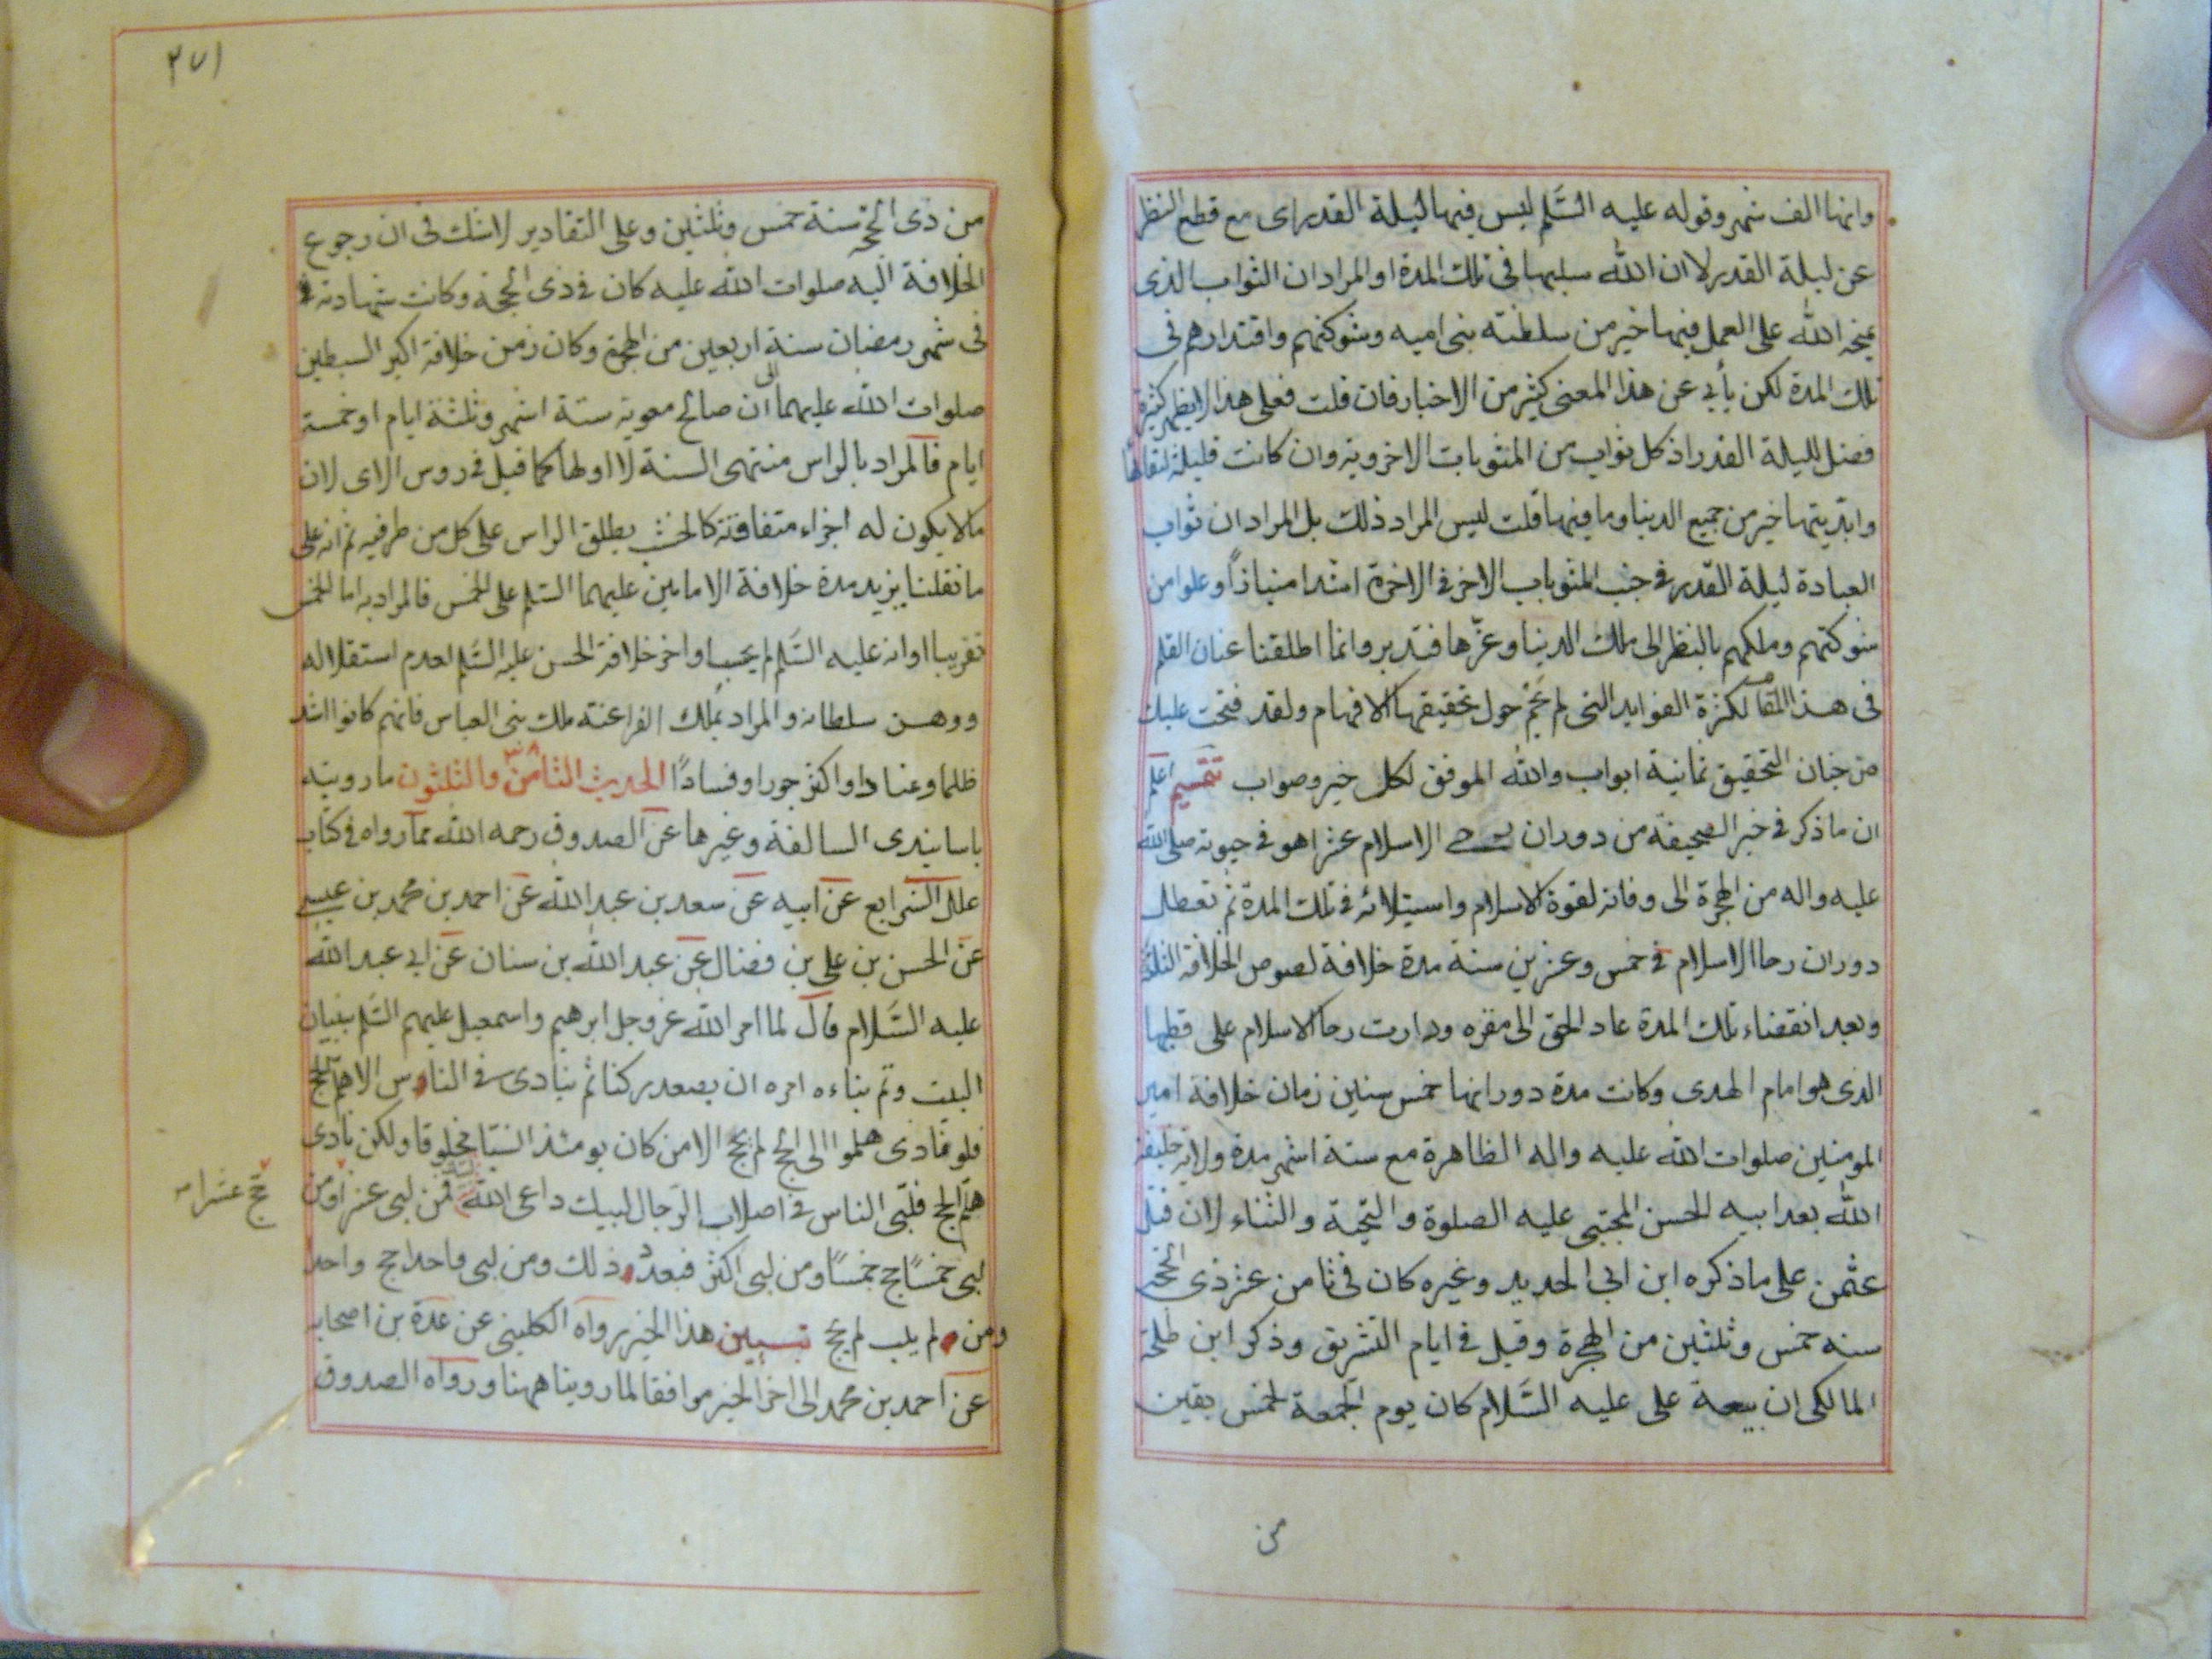 وانها الف شهر وقوله عليه السَّلم ليس فيها ليلة القدر اى مع قطع النظر
عن ليلة القدر لا ان الله سلبها فى تلك المدة او المراد ان الثواب الذى
يمنحه الله على العمل فيها خير من سلطنة بنى اميه وشوكتهم واقتدارهم فى
تلك المدة لكن يأبي عن هذا المعنى كثير من الاخبار فان قلت فعلى هذا لا يظهر كثير
فضل لليلة القدر اذ كل ثواب من المثوبات الاخروية وان كانت قليلة لبقائها
وابديتها خير من جميع الدنيا وما فيها قلت ليس المراد ذلك بل المراد ان ثواب
العبادة ليلة القدر فى جنب المثوبات الاخر فى الاخرة اشد امتيازاً وعلوا من
شوكتهم وملكهم بالنظر الى ملك الدنيا وعزّها فتدبر وانما اطلقنا عنان القلم
فى هذا المقام لكثرة الفوايد التى لم تحم حول تحقيقها الافهام ولقد فتحت عليك
من جنان التحقيق ثمانية ابواب والله الموفق لكل خير وصواب تتميم اعلم
ان ما ذكر فى خبر الصحيفة من دوران رحى الاسلام عشرا هو فى حيوته صلى الله
عليه واله من الهجرة الى وفاته لقوة الاسلام واستيلائه فى تلك المدة ثم تعطل
دوران رحا الاسلام فى خمس وعشرين سنة مدة خلافة لصوص الخلافة الثلثة
وبعد انقضاء تلك المدة عاد الحق الى مقره ودارت رحا الاسلام على قطبها
الذى هو امام الهدى وكانت مدة دورانها خمس سنين زمان خلافة امير
المومنين صلوات الله عليه واله الطاهرة مع ستة اشهر مدة ولاية خليفة
الله بعد ابيه الحسن المجتبى عليه الصلوة والتحية والثناء لان قتل
عثمن على ما ذكره ابن ابى الحديد وغيره كان فى ثامن عشر ذى الحجة
سنه خمس وثلثين من الهجرة وقيل فى ايام التشريق وذكر ابن طلحة
المالكى ان بيعة على عليه السَّلام كان يوم الجمعة لخمس بقين
من
٢٧١
من ذى الحجة سنة خمس وثلثين وعلى التقادير لا شك فى ان رجوع
الخلافة اليه صلوات الله عليه كان فى ذى الحجة وكانت شهادته
فى شهر رمضان سنة اربعين من الهجرة وكان زمن خلافة اكبر السبطين
صلوات الله عليهما الى ان صالح معوية ستة اشهر وثلثة ايام او خمسة
ايام فالمراد بالراس منتهى السنة لا اولها كما قيل فى روس الاى لان
ما لا يكون له اجزاء متفاوتة كالخشب يطلق الراس على كل من طرفيه ثم انه على
ما نقلنا يزيد مدة خلافة الامامين عليهما السَّلم على الخمس فالمراد به اما الخمس
تقريبا او انه عليه السَّلم لم يحسب اواخر خلافة الحسن عليه السَّلم لعدم استقلاله
ووهن سلطانه والمراد بملك الفراعنة ملك بنى العباس فانهم كانوا اشد
ظلما وعنادا واكثر جورا وفسادًا الحديث الثامن ٣٨ والثلثون ما رويته
باسانيدى السالفة وغيرها عن الصدوق رحمه الله مما رواه فى كتاب
علل الشرايع عن ابيه عن سعد بن عبد الله عن احمد بن محمد بن عيسى
عن الحسن بن على بن فضال عن عبد الله بن سنان عن ابى عبد الله
عليه السَّلام قال لما امر الله عز وجل ابرهيم واسمعيل عليهم السَّلم ببنيان
البيت وتم بناءه امره ان يصعد ركنا ثم ينادى فى الناس الا هلم الحج
فلو نادى هلموا الى الحج لم يحج الا من كان يومئذ انسيّا مخلوقا ولكن نادى
هلم الحج فلبّى الناس فى اصلاب الرّجال لبيك داعى الله فمن لبى عشرا ومن
حج عشرا
لبى خمسًا حج خمسًا ومن لبى اكثر فبعدد ذلك ومن لبى واحدا حج واحدا
ومن لم يلب لم يحج تبيين هذا الخبر رواه الكلينى عن عدة بن اصحابه
عن احمد بن محمد الى اخر الخبر موافقا لما روينا ههنا ورواه الصدوق